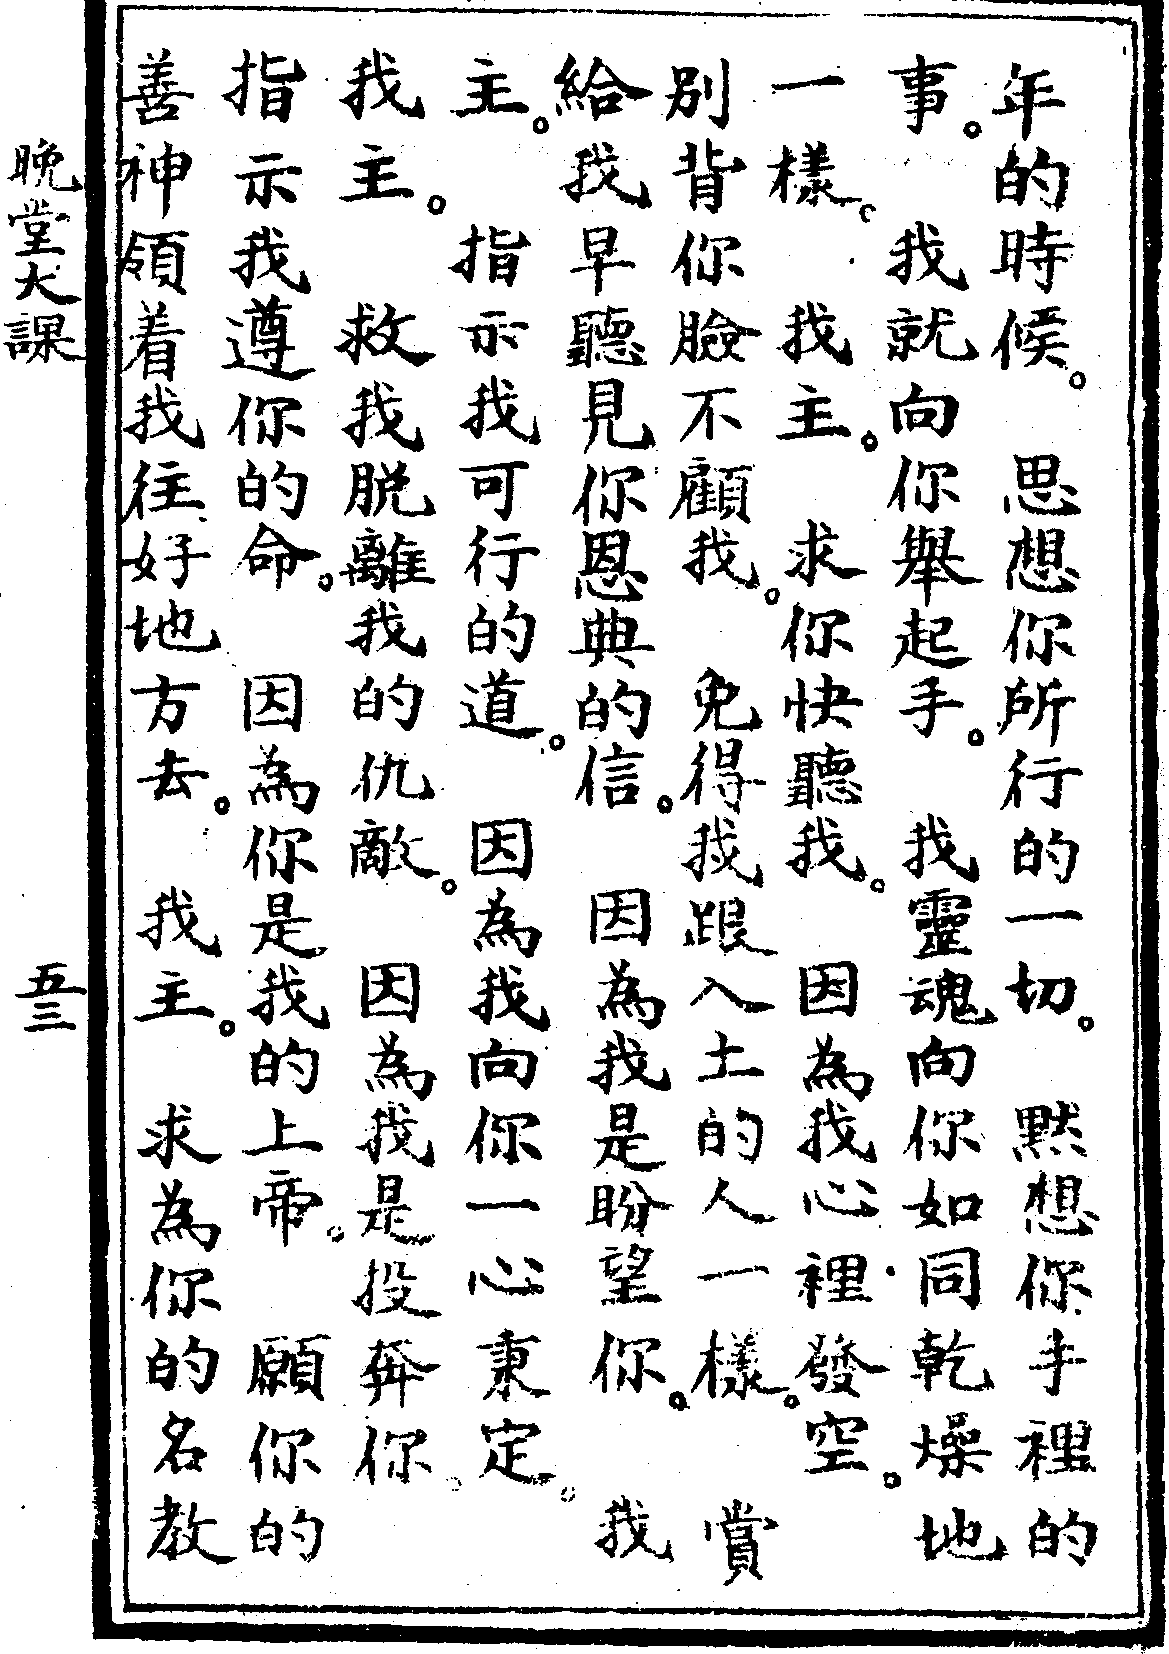 年的時候。　思想你所行的一切。　默想你手裡的
事。　我就向你舉起手。　我靈魂向你如同乾燥地
一樣。　我主。　求你快聽我。　因為我心裡發空。
別背你臉不顧我。　免得我跟入土的人一樣。　賞
給我早聽見你恩典的信。　因為我是盼望你。　我
主。　指示我可行的道。　因為我向你一心秉定。
我主。　救我脫離我的仇敵。　因為我是投奔你。
指示我遵你的命。　因為你是我的上帝。　願你的
善神領着我往好地方去。　我主。　求為你的名教
晚堂大課　五三